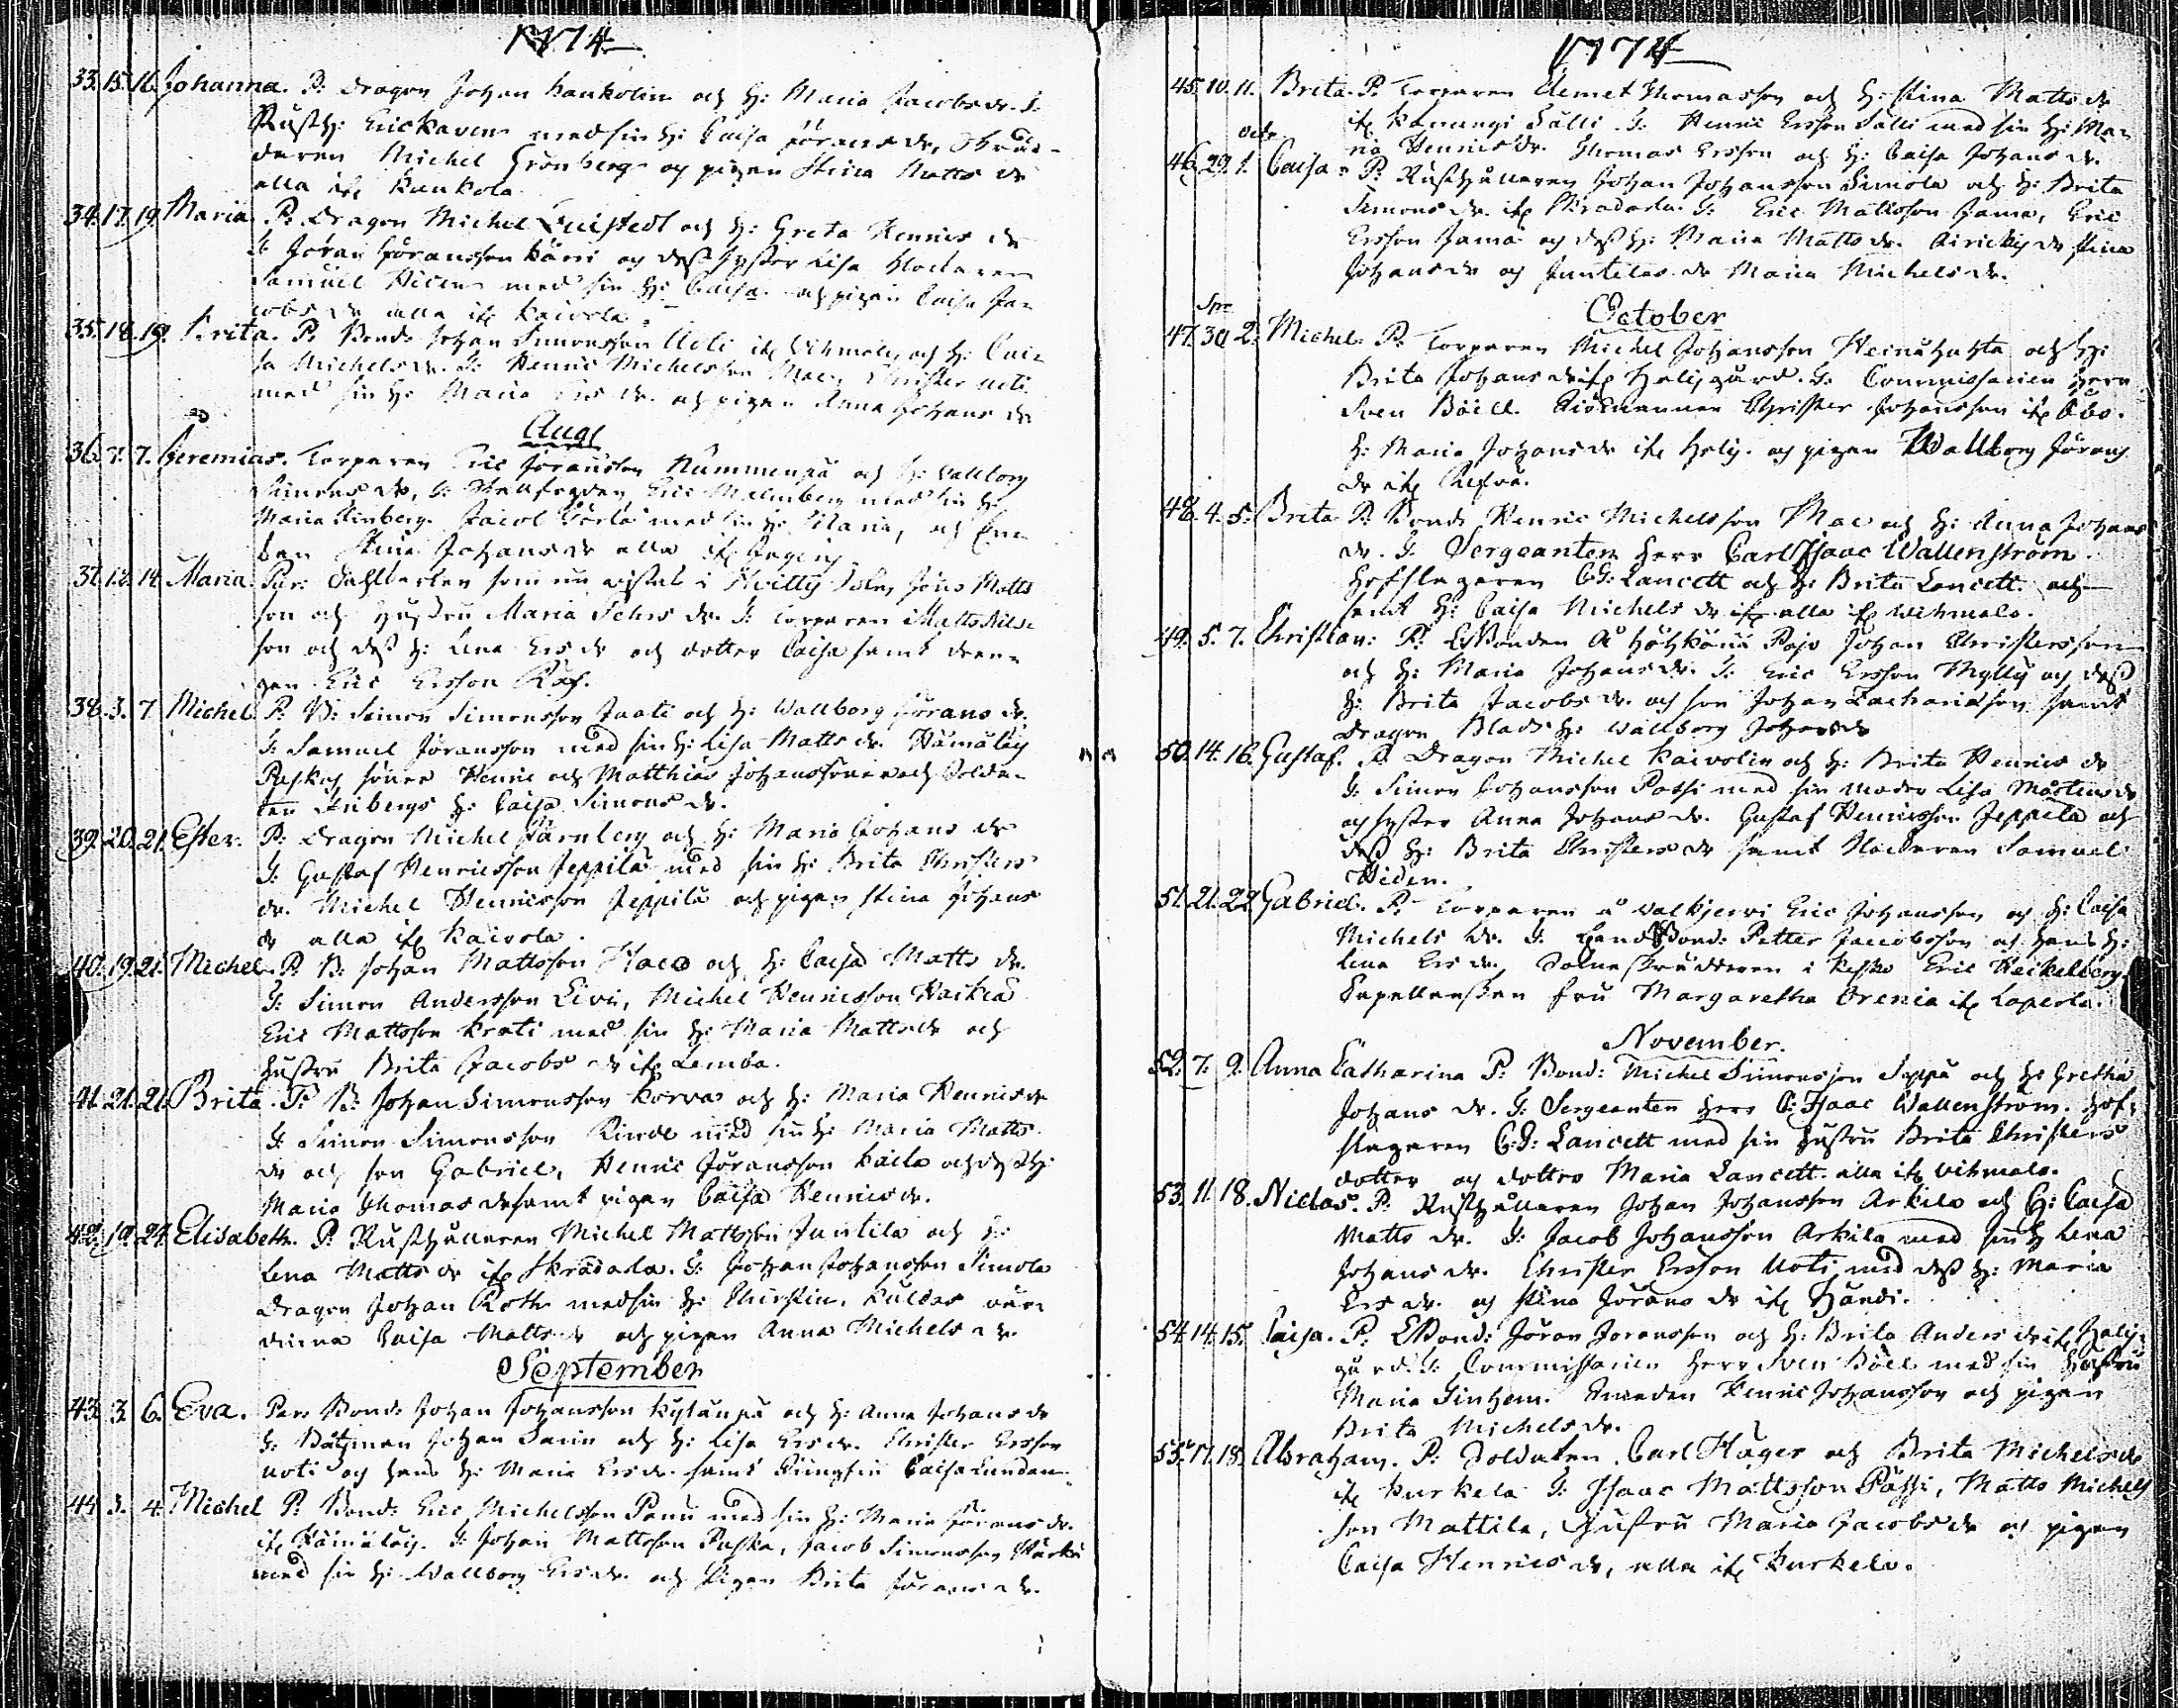 1774
33. 15. 16. Johanna. P: Dragon Johan Kaukolin och H: Maria Jacobs dr. F:
Rusth: Eric Kaven med sin H: Caisa Jörans dr, Skräd-
daren Michel Grönberg och pigan Stina Matts dr
alla ifr Kaukola
34. 17. 19. Maria. P: Dragon Michel Quistedt och H: Greta Henrics dr
F: Jöran Jöransson Kärri och dess syster Lisa Klockaren
Samuel Hiden med sin H: Caisa och pigan Caisa Ja-
cobs dr alla ifr Kaivola
35. 18. 19. Brita. P: Bond: Johan Simonsson Uoti ifr Vihmalo och H: Cai-
sa Michels dr. F: Henric Michelsson Mac, Christer Uoti
med sin H: Maria Ers dr. och pigan Anna Johans dr
Aug
36. 7. 7. Jeremias. Torparen Eric Jöransson Nummenpää och H: Wallborg
Simons dr, F: Eric Malmberg med sin H:
Maria Finberg. Jacob med sin H: Maria, och
Stina Johans dr alla ifr
37. 12. 14. Maria. Par: som nu vistas i Jöns Matts
son och hustru Maria dr. F: Torparen Matts Nils-
son och dess H: Lena Ers dr och dotter Caisa samt dren-
gen Eric Ersson Räf.
38. 3. 7 Michel P: B: Simon Simonsson Jaati och H: Wallborg Jörans dr.
F: Samuel Jöransson med sin H: Lisa Matts dr. Hämäläis
söner Henric och Matthias Johanssöner och Solda-
ten H: Caisa Simons dr.
39. 20. 21. Ester. P: Dragon Michel Järnberg och H: Maria Johans dr
F: Gustaf Henricsson Jeppilä med sin H: Brita Christers
dr. Michel Henricsson Jeppilä och pigan Stina Johans
dr alla ifr Kaivola.
40. 19. 21. Michel. P: B: Johan Mattsson och H: Caisa Matts dr.
F: Simon Andersson Livi, Michel Henricsson
Eric Mattsson Krati med sin H: Maria Matts dr och
hustru Brita Jacobs dr ifr Lemba.
41. 21. 21. Brita. P: B: Johan Simonsson Korvas och H: Maria Henrics dr
F: Simon Simonsson med sin H: Maria Matts
dr och son Gabriel, Henric Jöransson Kaila och dess H:
Maria Thomas dr samt pigan Caisa Henrics dr.
42. 19. 24. Elisabeth. P: Rusthållaren Michel Mattsson Juntila och H:
Lena Matts dr ifr Skradarla. F: Johan Johansson Simola
Dragon Johan Roth med sin H: Christin,
Caisa Matts dr och pigan Anna Michels dr
September
43. 3. 6. Eva. Par: Bond: Johan Johansson Kylänpä och H: Anna Johans dr
F: Båtzman Johan Sarin och H: Lisa Ers dr. Christer Ersson
Uoti och hans H: Maria Ers dr. samt Jungfru Caisa Lundan.
44. 3. 4. Michel P: Bond: Eric Michelsson Panu med sin H: Maria Jörans dr.
ifr Hämäläis. F: Johan Mattsson Paska, Jacob Simonsson
med sin H: Wallborg Ers dr. och Pigan Brita Jörans dr.
1774
45. 10. 11. Brita. P: Torparen Clemet Thomasson och H: Stina Matts dr
ifr Kanungi Sälli. F: Henric Ersson Sälli med sin H: Ma-
ria Henrics dr. Thomas Ersson och H: Caisa Johans dr.
octr
46. 29. 1. Caisa. P: Rusthållaren Johan Johansson Simola och H: Brita
Simons dr. ifr Skradarla. F: Eric Mattsson Jama, Eric
Ersson Jama och dess H: Maria Matts dr. dr Stina
Johans dr och Juntilas dr Maria Michels dr.
October
Spr
47. 30 2. Michel. P: Torparen Michel Johansson Heinähuhta och H:
Brita Johans dr ifr Helisgård. F: Commissarien Herr
Sven Böell. Christer Johansson ifr Åbo.
H: Maria Johans dr ifr Helig. och pigan Wallborg Jörans
dr ifr
48. 4. 5. Brita P: Bond: Henric Michelsson Mac och H: Anna Johans
dr. F: Sergeanten Herr Carl Isaac Wallenström.
Hofslagaren C.G: Lancett och H: Brita Lancett. och
samt H: Caisa Michels dr ifr alla ifr Wihmalo.
49. 5. 7. Christian: P: Bonden Å Pajo Johan Christersson
och H: Maria Johans dr. F: Eric Ersson Mylly och dess
H: Brita Jacobs dr. och son Johan Zachariasson samt
Dragon Blads H: Wallborg Johans dr
50. 14. 16. Gustaf. P: Dragon Michel Kaivolin och H: Brita Henrics dr
F: Simon Johansson Passi med sin moder Lisa Mårtens dr
och syster Anna Johans dr. Gustaf Henricsson Jeppilä och
dess H: Brita Christers dr samt Klockaren Samuel
Hiden.
51. 21. 22. Gabriel. P: Torparen å Valkjervi Eric Johansson och H: Caisa
Michels dr. F: LandBond: Petter Jacobsson och hans H:
Lena Ers dr, Sockneskräddaren i Kesko Eric Heickelberg.
Capellanskan fru Margaretha Orenia ifr Laperla.
November.
52. 7. 9. Anna Catharina P: Bond: Michel Simonsson Seppä och H: Gretha
Johans dr. F: Sergeanten Herr C: Isaac Wallenström. Hof-
slagaren C.G: Lancett med sin hustru Brita Christers
dotter och dotter Maria Lancett. alla ifr Vihmalo.
53. 11. 18. Niclas. P: Rusthållaren Johan Johansson Arkila och H: Caisa
Matts dr. F: Jacob Johansson Arkila med sin H Lena
Johans dr. Christer Ersson Uoti med dess H: Maria
Ers dr. och Stina Jörans dr ifr Händi.
54. 14. 15. Caisa. P: Bond: Jöran Jöransson och H: Brita Anders dr ifr Helis-
gård. F: Commissarien Herr Sven Böell med sin Hustru
Maria Sinhem. Smeden Henric Johansson och pigan
Brita Michels dr.
55. 17. 18. Abraham. P: Soldaten Carl Häger och Brita Michels dr
ifr Kurkela F: Isaac Mattsson Passi, Matts Michels
son Mattila, Hustru Maria Jacobs dr och pigan
Caisa Henrics dr, alla ifr Kurkela.